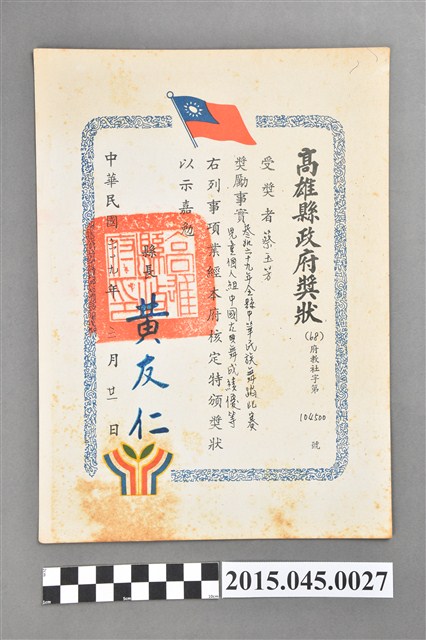 高雄縣政府獎狀
(68)府教社字第104500號
受獎者蔡玉芳
獎勵事實參加六十九年全縣中華民族舞蹈比賽
兒童個人組中國古典舞成績優等
右列事項業經本府核定特頒獎狀
以示嘉勉
縣長 黃友仁
中華民國六十九年 月廿一日
2015.045.0027